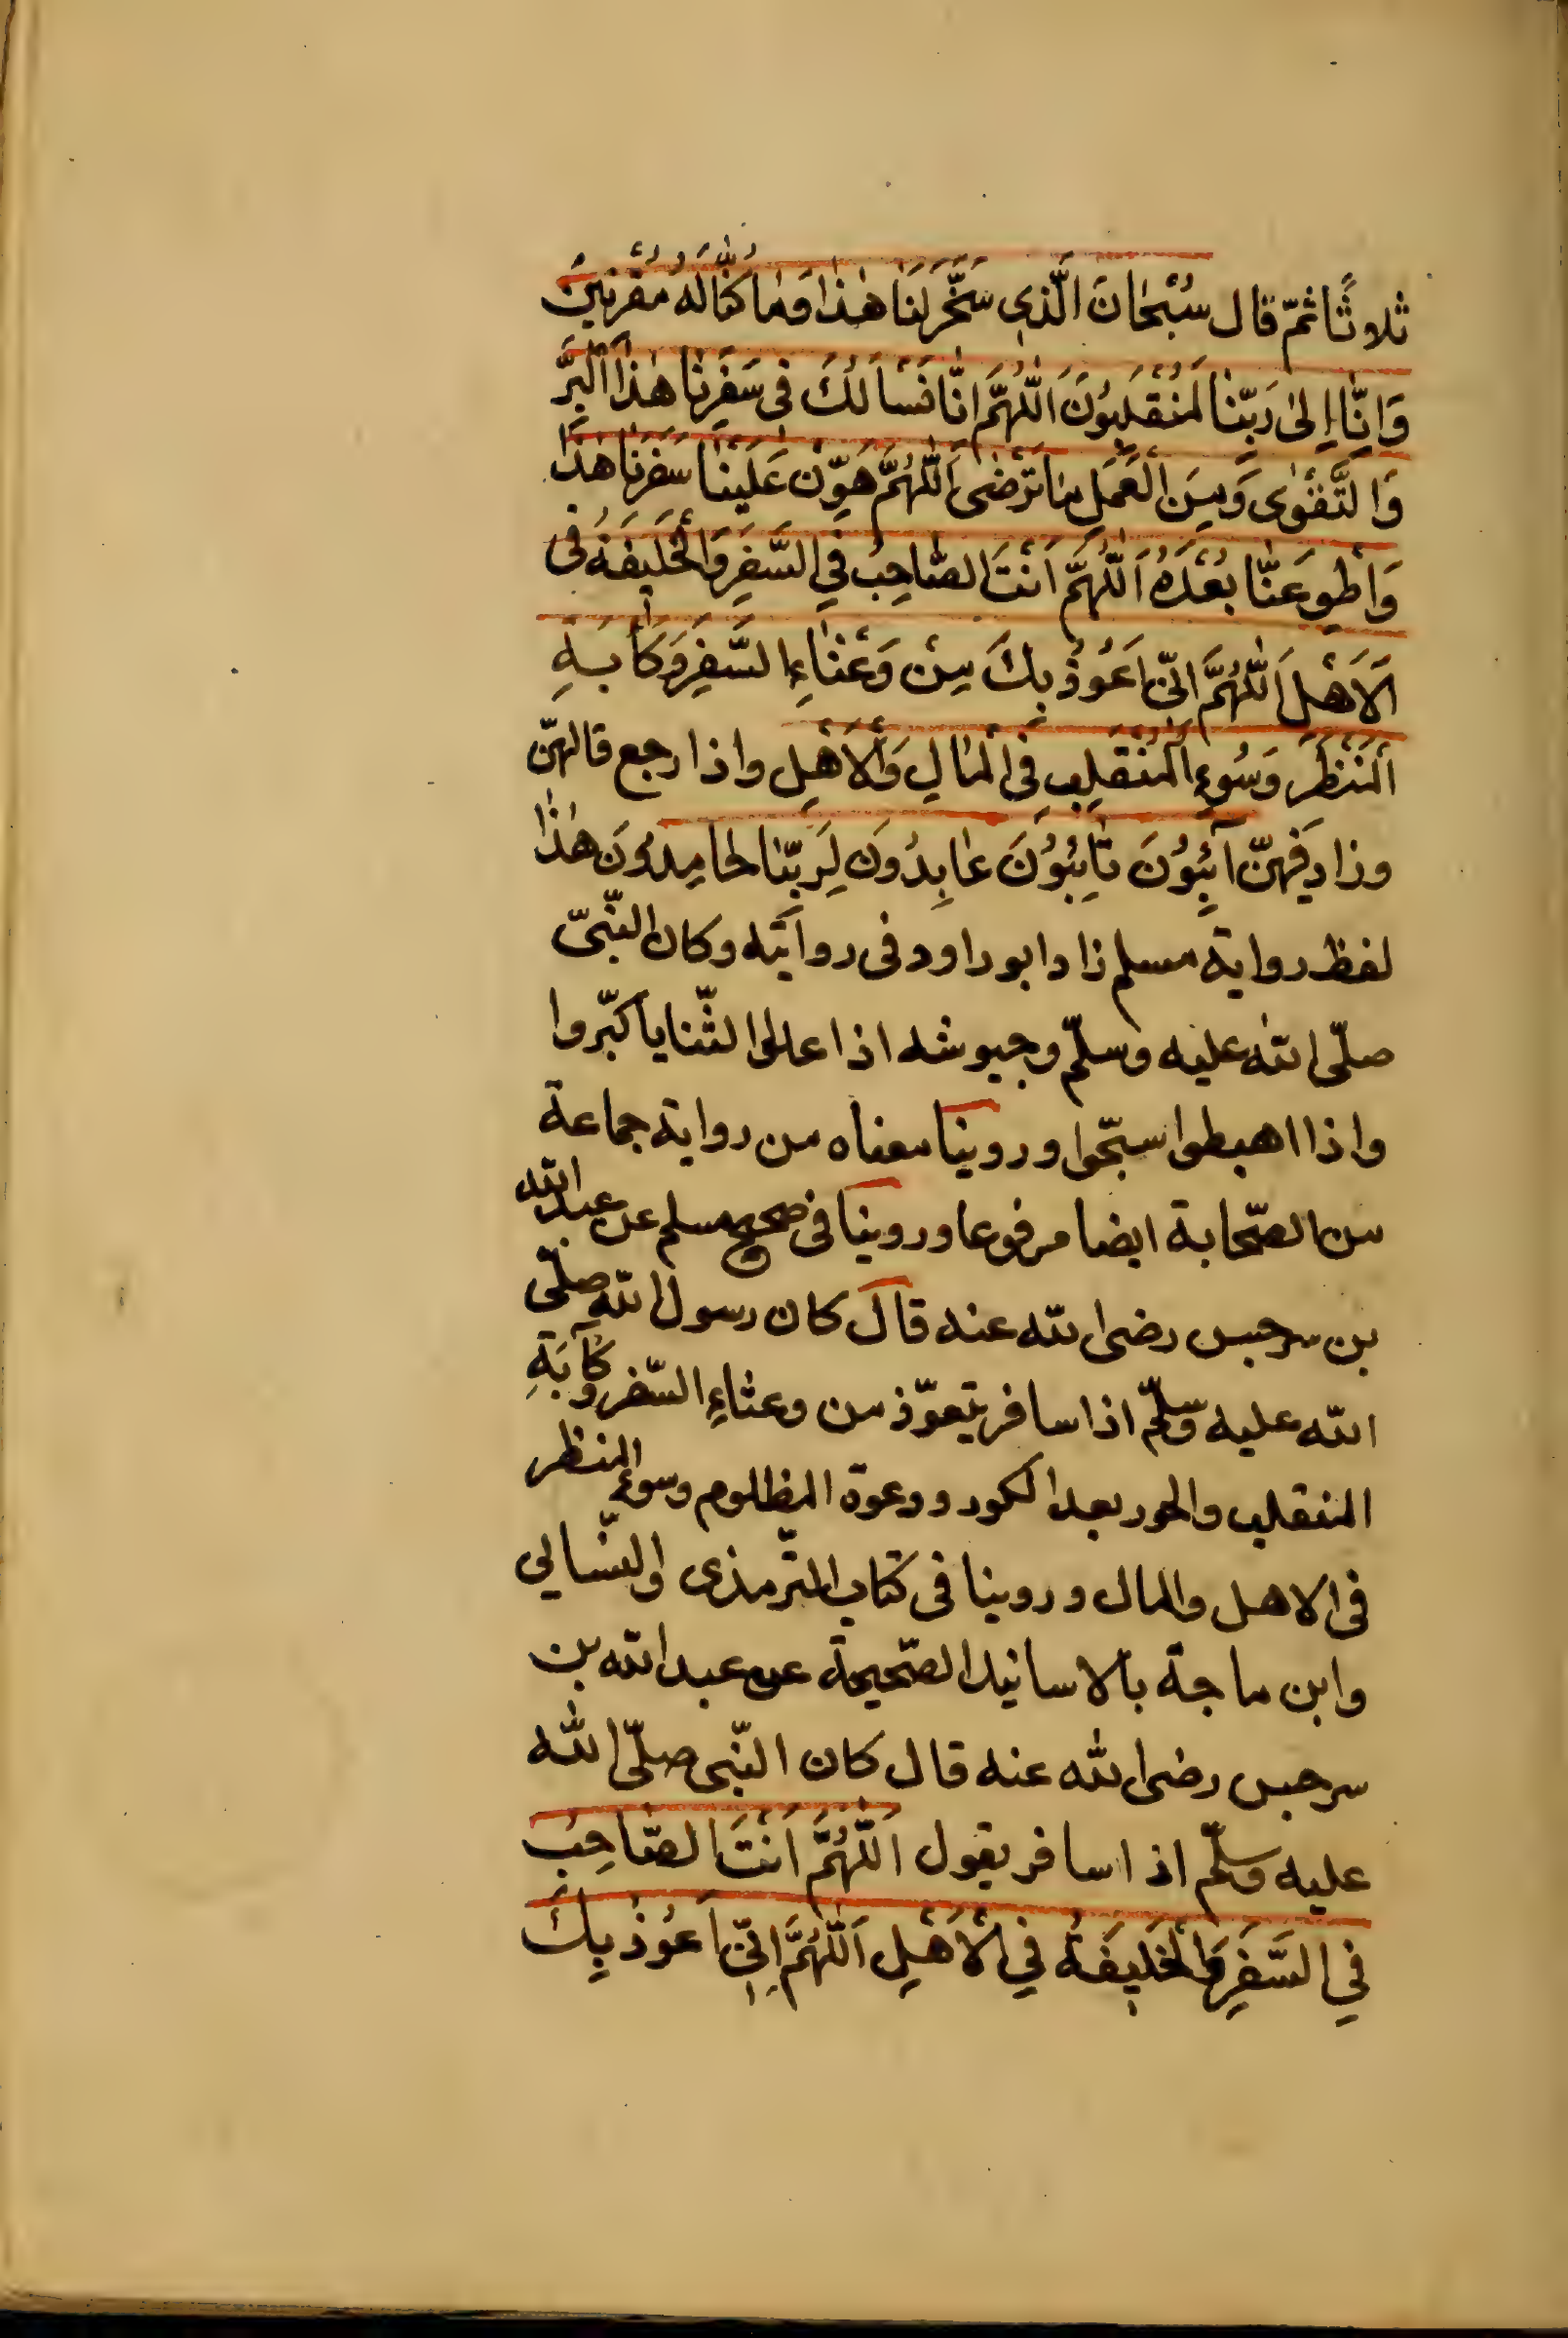 ثلاثًا ثمّ قال سُبْحَانَ الَّذِي سَخَّرَ لَنَا هٰذَا وَمَا كُنَّا لَهُ مُقْرِنِينَ
وَاِنَّا اِلىٰ رَبِّنَا لَمُنْقَلِبُونَ اَللّٰهُمَّ اِنَّا نَسْأَلُكَ فِى سَفَرِنَا هٰذَا الْبِرَّ
وَالتَّقْوٰى وَمِنَ الْعَمَلِ مَا تَرْضٰى اَللّٰهُمَّ هَوِّنْ عَلَيْنَا سَفَرَنَا هٰذَا
وَاَطْوِ عَنَّا بُعْدَهُ اَللّٰهُمَّ اَنْتَ الصَّاحِبُ فِي السَّفَرِ وَالْخَلِيفَةُ فِى
الْاَهْلِ اَللّٰهُمَّ اِنِّى اَعُوْذُ بِكَ مِنْ وَعْثَاءِ السَّفَرِ وَكَأبَةِ
الْمَنْظَرِ وَسُوءِ الْمُنْقَلِبِ فِى الْمَالِ وَالْاَهْلِ واذا رجع قالهنّ
وزاد فيهنّ آئِبُوْنَ تَائِبُوْنَ عَابِدُوْنَ لِرَبِّنَا حَامِدُونَ هٰذا
لفظ رواية مسلم زاد ابو داود فى روايته وكان النّبىّ
صلّى الله عليه وسلّم وجيوشه اذا عالوا الثّنايا كبّروا
واذا اهبطوا سبّحوا وروينا معناه من رواية جماعة
من الصّحابة ايضا مرفوعا وروينا فى صحيح مسلم عن عبد الله
بن سرجس رضى الله عنه قال كان رسول الله صلّى
الله عليه وسلّم اذا سافر يتعوّذ من وعثاءِ السّفر وكآبَةِ
المنقلب والحور بعد الكور ودعوة المظلوم وسوء المنظر
فى الاهل والمال وروينا فى كتاب التّرمذى والنّسائي
وابن ماجة بالاسانيد الصّحيحة عن عبد الله بن
سرجس رضى الله عنه قال كان النّبى صلّى الله
عليه وسلّم اذا سافر يقول اَللّٰهُمَّ اَنْتَ الصَّاحِبُ
فِي السَّفَرِ وَالْخَلِيفَةُ فِي الْاَهْلِ اَللّٰهُمَّ اِنِّى اَعُوْذُ بِكَ